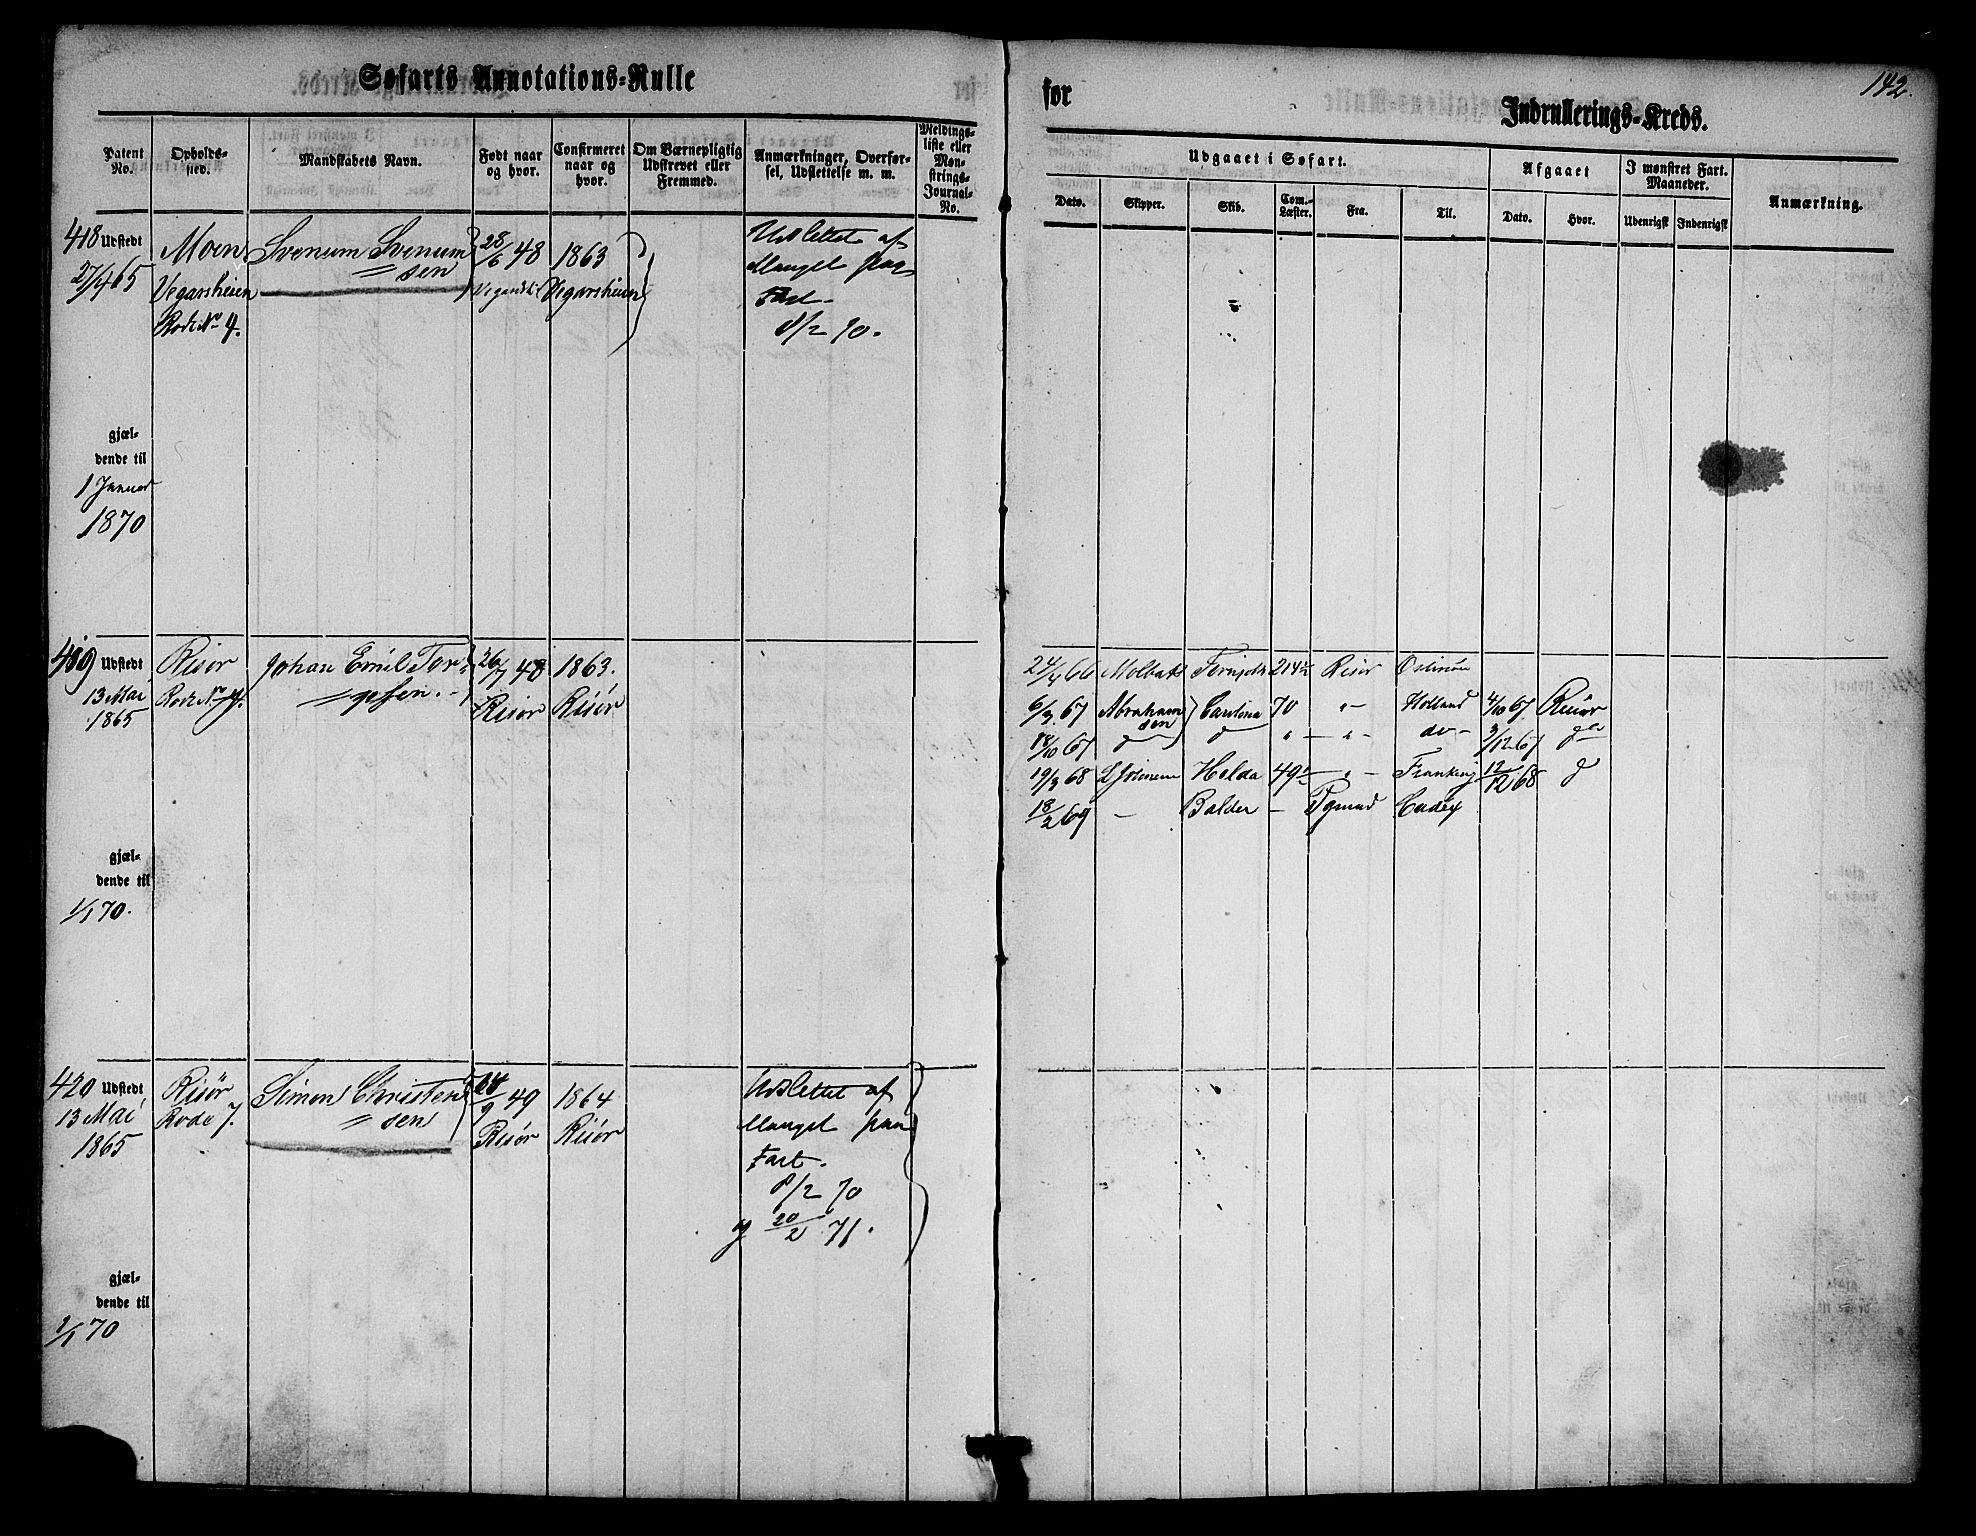 Søfarts Annotations-Rulle
for
Indrullerings-Kreds.
142.
Patent No.
Opholds-sted.
Mandskabets Navn.
Født naar og hvor.
Confirmeret naar og hvor.
Om Værnepligtig Udskrevet eller Fremmed.
Anmærkninger, Overførsel, Udslettelse m. m.
Meldings-liste eller Mønstrings-Journal-No.
Udgaaet i Søfart.
Afgaaet
I mønstret Fart. Maaneder.
Anmærkning.
Dato.
Skipper.
Skib.
Com.-Læster.
Fra.
Til.
Dato.
Hvor.
Udenrigsk
Indenrigsk
418 Udstedt
27/4 65
Moen
Vegarsheien
Rode No 4.
Svenum Svenum
sen
28/6 48
1863
Vegarsheien
Udslettet af
Mangel paa
Fart
8/2 70.
gjæl-
dende til
1 Januar
1870
419 Udstedt
13 Mai
1865
Risør
Rode No
Johan Emil Tor
gesen.
26/7 48
Risør
1863.
Risør
24/4 66 Molbak 214½ Risør Østersøen
6/3 67 Abraham
sen Carolina 70 " Holland 4/10 67 Risør
18/10 67 do 3/12 67
19/3 68 Helda 49½ " 12/12 68
18/2 69 — Balder — Cadix
gjæl-
dende til
1/1 70.
420 Udstedt
13 Mai
1865
Risör
Rode 7.
Simon Christen
sen
24/9 49
Risør
1864
Risør
Udslettet af
Mangel paa
Fart.
8/2 70
og 20/2 71.
gjæl-
dende til
1/1 70